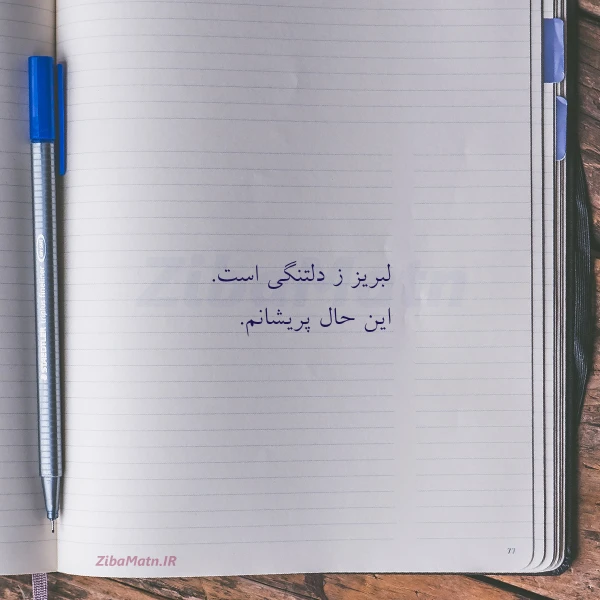 لبریز ز دلتنگی است.
این حال پریشانم.
ZibaMatn
77
ZibaMatn.IR